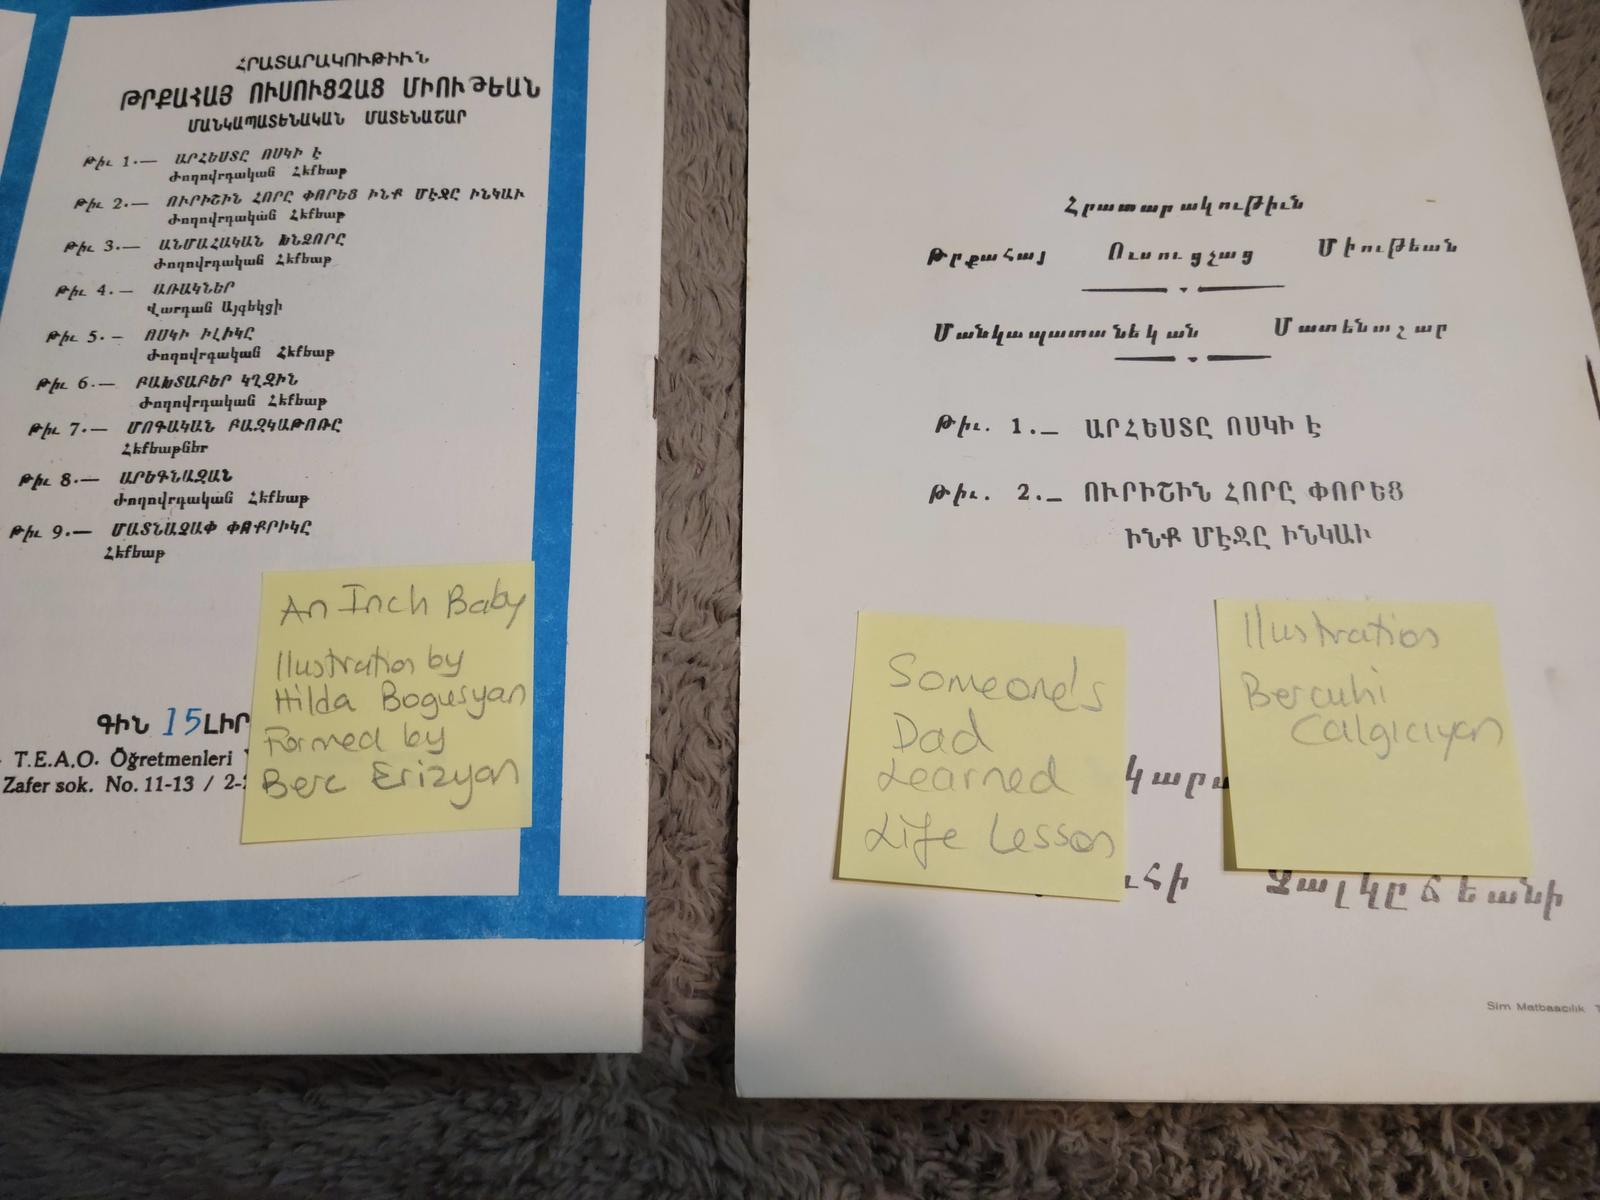 ՀՐԱՏԱՐԱԿՈՒԹԻՒՆ
ԹՐՔԱՀԱՅ ՈՒՍՈՒՑՉԱՑ ՄԻՈՒԹԵԱՆ
ՄԱՆԿԱՊԱՏԵՆԱԿԱՆ ՄԱՏԵՆԱՇԱՐ
Թիւ 1.— ԱՐՀԵՍՏԸ ՈՍԿԻ Է
Ժողովրդական Հէքեաթ
Թիւ 2.— ՈՒՐԻՇԻՆ ՀՈՐԸ ՓՈՐԵՑ ԻՆՔ ՄԷՋԸ ԻՆԿԱՒ
Ժողովրդական Հէքեաթ
Թիւ 3.— ԱՆՄԱՀԱԿԱՆ ԽՆՁՈՐԸ
Ժողովրդական Հէքեաթ
Թիւ 4.— ԱՌԱԿՆԵՐ
Վարդան Այգեկցի
Թիւ 5.— ՈՍԿԻ ԻԼԻԿԸ
Ժողովրդական Հէքեաթ
Թիւ 6.— ԲԱԽՏԱԲԵՐ ԿՂԶԻՆ
Ժողովրդական Հէքեաթ
Թիւ 7.— ՄՈԳԱԿԱՆ ԲԱԶԿԱԹՈՌԸ
Հէքեաթներ
Թիւ 8.— ԱՐԵԳՆԱԶԱՆ
Ժողովրդական Հէքեաթ
Թիւ 9.— ՄԱՏՆԱՉԱՓ ՓՈՔՐԻԿԸ
Հէքեաթ
An Inch Baby
Illustration by
Hilda Bogusyan
Formed by
Berc Erizyan
ԳԻՆ 15 ԼԻՐ
T.E.A.O. Öğretmenleri
Zafer sok. No. 11-13 / 2-
Հրատարակութիւն
Թրքահայ Ուսուցչաց Միութեան
Մանկապատանեկան Մատենաշար
Թիւ. 1._ ԱՐՀԵՍՏԸ ՈՍԿԻ Է
Թիւ. 2._ ՈՒՐԻՇԻՆ ՀՈՐԸ ՓՈՐԵՑ
ԻՆՔ ՄԷՋԸ ԻՆԿԱՒ
Someone's
Dad
Learned
Life Lesson
Illustration
Bercuhi
Calgiciyan
Ջալկըճեանի
Sim Matbaacılık